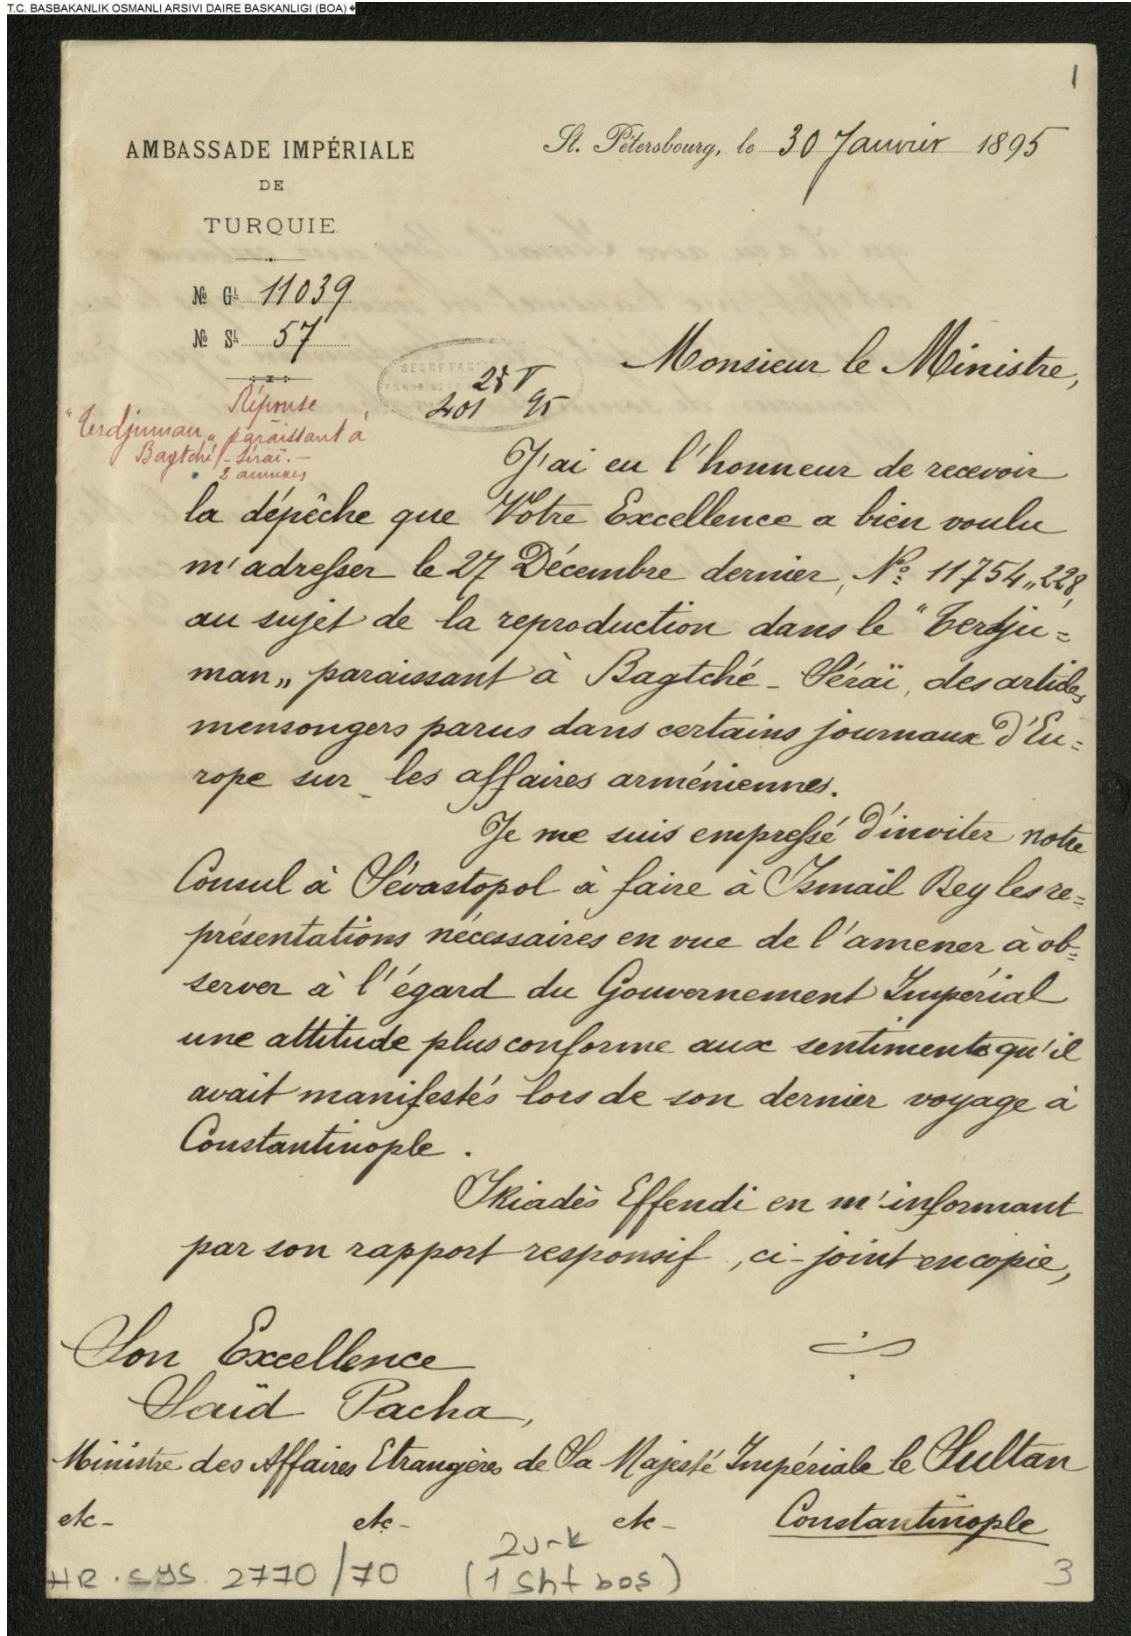 T.C. BASBAKANLIK OSMANLI ARSIVI DAIRE BASKANLIGI (BOA)
1
AMBASSADE IMPÉRIALE
DE
TURQUIE
St. Pétersbourg, le 30 Janvier 1895
No Gl 11039
No Sl 57
SECRETA
28 V
201 95
Réponse
"Terdjuman„ paraissant à
Bagtché-Séraï.-
2 annexes
Monsieur le Ministre,
J'ai eu l'honneur de recevoir
la dépêche que Votre Excellence a bien voulu
m'adresser le 27 Décembre dernier, No: 11754„228,
au sujet de la reproduction dans le "Terdju=
man„ paraissant à Bagtché-Séraï, des articles
mensongers parus dans certains journaux d'Eu=
rope sur les affaires arméniennes.
Je me suis empressé d'inviter notre
Consul à Sévastopol à faire à Ismail Bey les re=
présentations nécessaires en vue de l'amener à ob=
server à l'égard du Gouvernement Impérial
une attitude plus conforme aux sentiments qu'il
avait manifestés lors de son dernier voyage à
Constantinople.
Skiadès Effendi en m'informant
par son rapport responsif, ci-joint en copie,
Son Excellence
Saïd Pacha,
Ministre des Affaires Etrangères de Sa Majesté Impériale le Sultan
etc- etc- etc- Constantinople
HR.SYS. 2770/70
2 vrk
(1 shf boş)
3